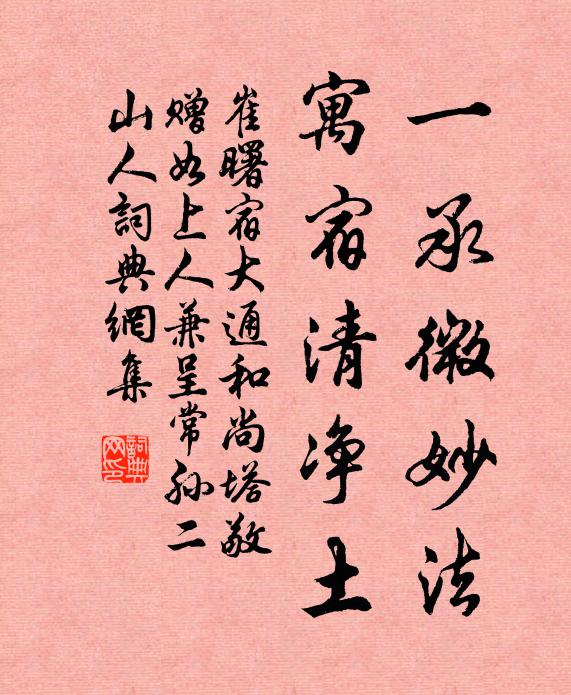 一承微妙法
寓宿清净土
崔曙宿大通和尚塔敬
赠如上人兼呈常孙二
山人詞典網集
詞典网印